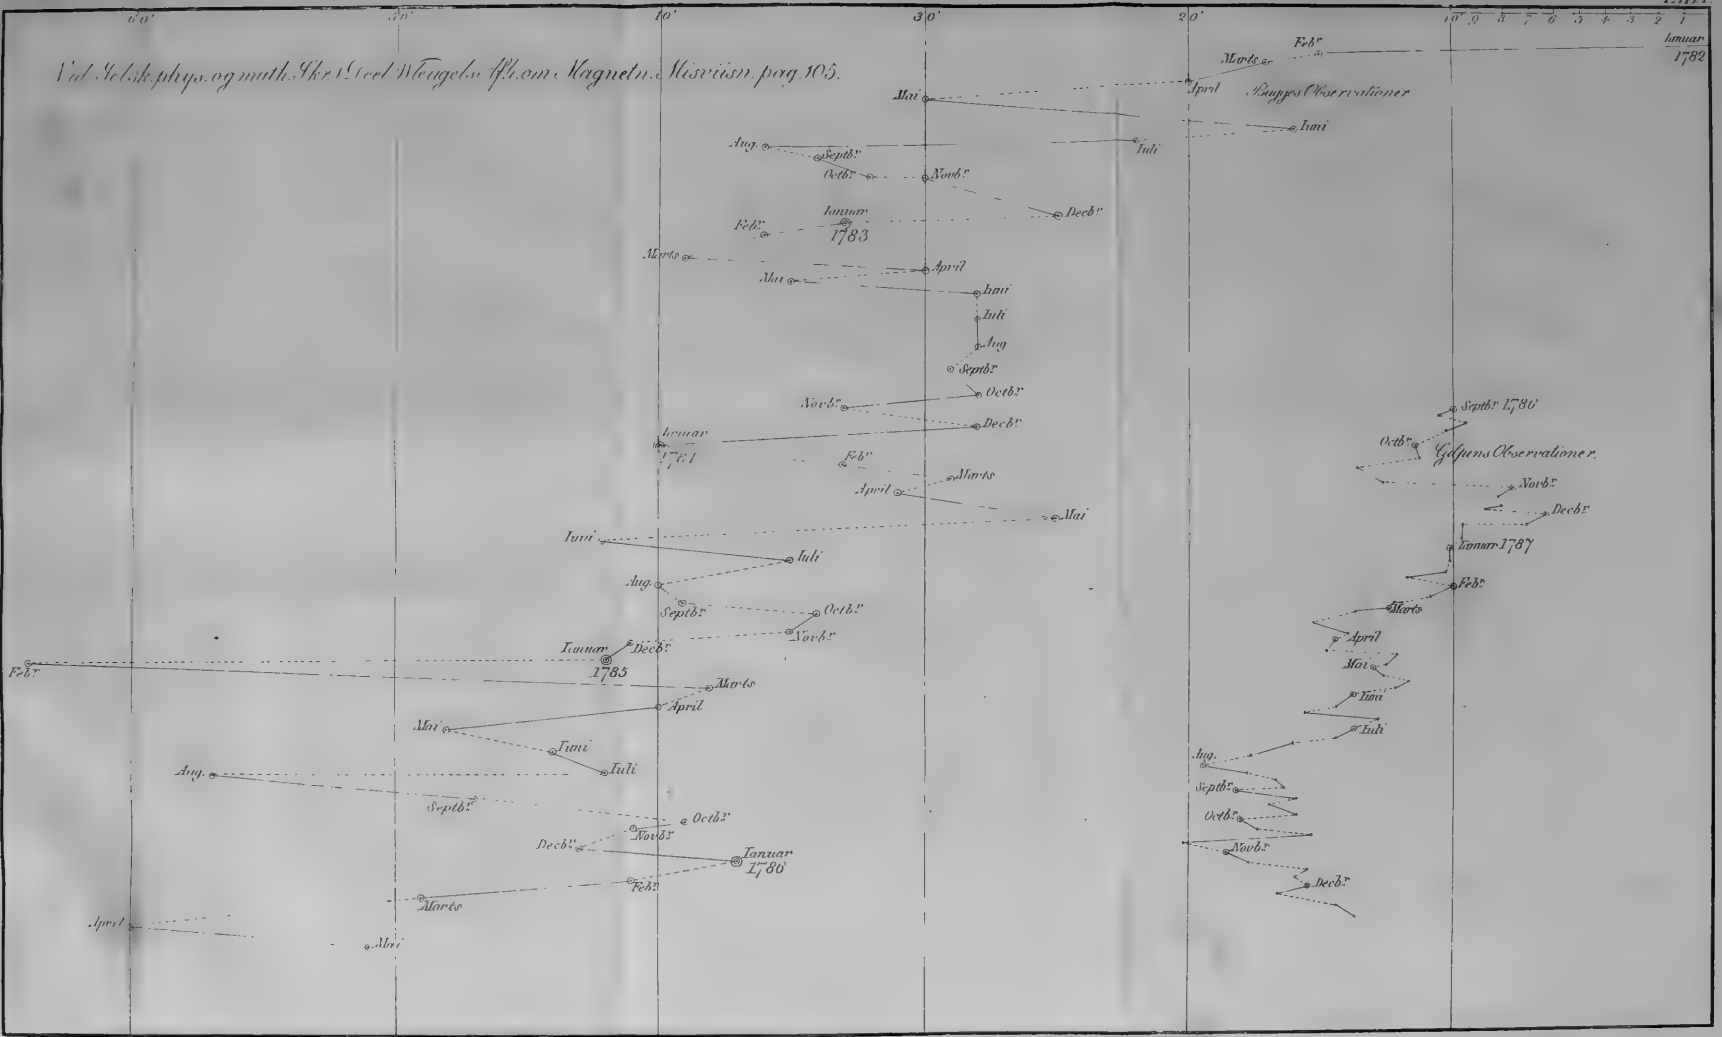 60' 50' 40' 30' 20' 10' 9 8 7 6 5 4 3 2 1
Vid. Selsk. phys. og math. Skr. 1. Deel Wleugels Afh. om Magnetn. Misviisn. pag. 105.
Ianuar
1782
Febr.
Marts
April
Bugges Observationer
Mai
Iuni
Iuli
Aug.
Septbr.
Octbr.
Novbr.
Decbr.
Ianuar
1783
Febr.
Marts
April
Mai
Iuni
Iuli
Aug
Septbr.
Octbr.
Novbr.
Decbr.
Ianuar
1784
Febr
Marts
April
Mai
Iuni
Iuli
Aug.
Septbr.
Octbr.
Novbr.
Decbr.
Ianuar
1785
Febr.
Marts
April
Mai
Iuni
Iuli
Aug.
Septbr.
Octbr.
Novbr.
Decbr.
Ianuar
1786
Febr.
Marts
April
Mai
Septbr. 1786
Octbr.
Gilpins Observationer.
Novbr.
Decbr.
Ianuar 1787
Febr.
Marts
April
Mai
Iuni
Iuli
Aug.
Septbr.
Octbr.
Novbr.
Decbr.